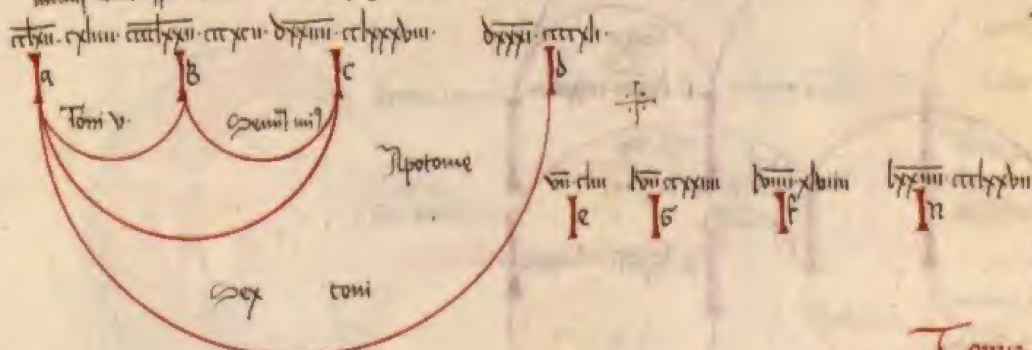 cclxii·cxliiii· cccclxxii·cccxcii· dxxiiii·cclxxxviii· dxxxi·ccccxli·
a B c d
Toni v· Semiṫ miꝰ
Apotome
vii·cliii lvii ccxxiiii lviiii·xlviiii lxxiiii·ccclxxvii
e G f n
Sex toni